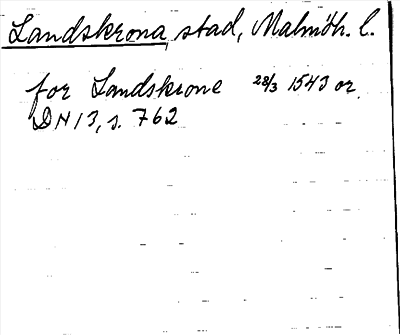 Landskrona, stad, Malmöh. l.
for Landskrone 28/3 1543 or.
DN 13, s. 762